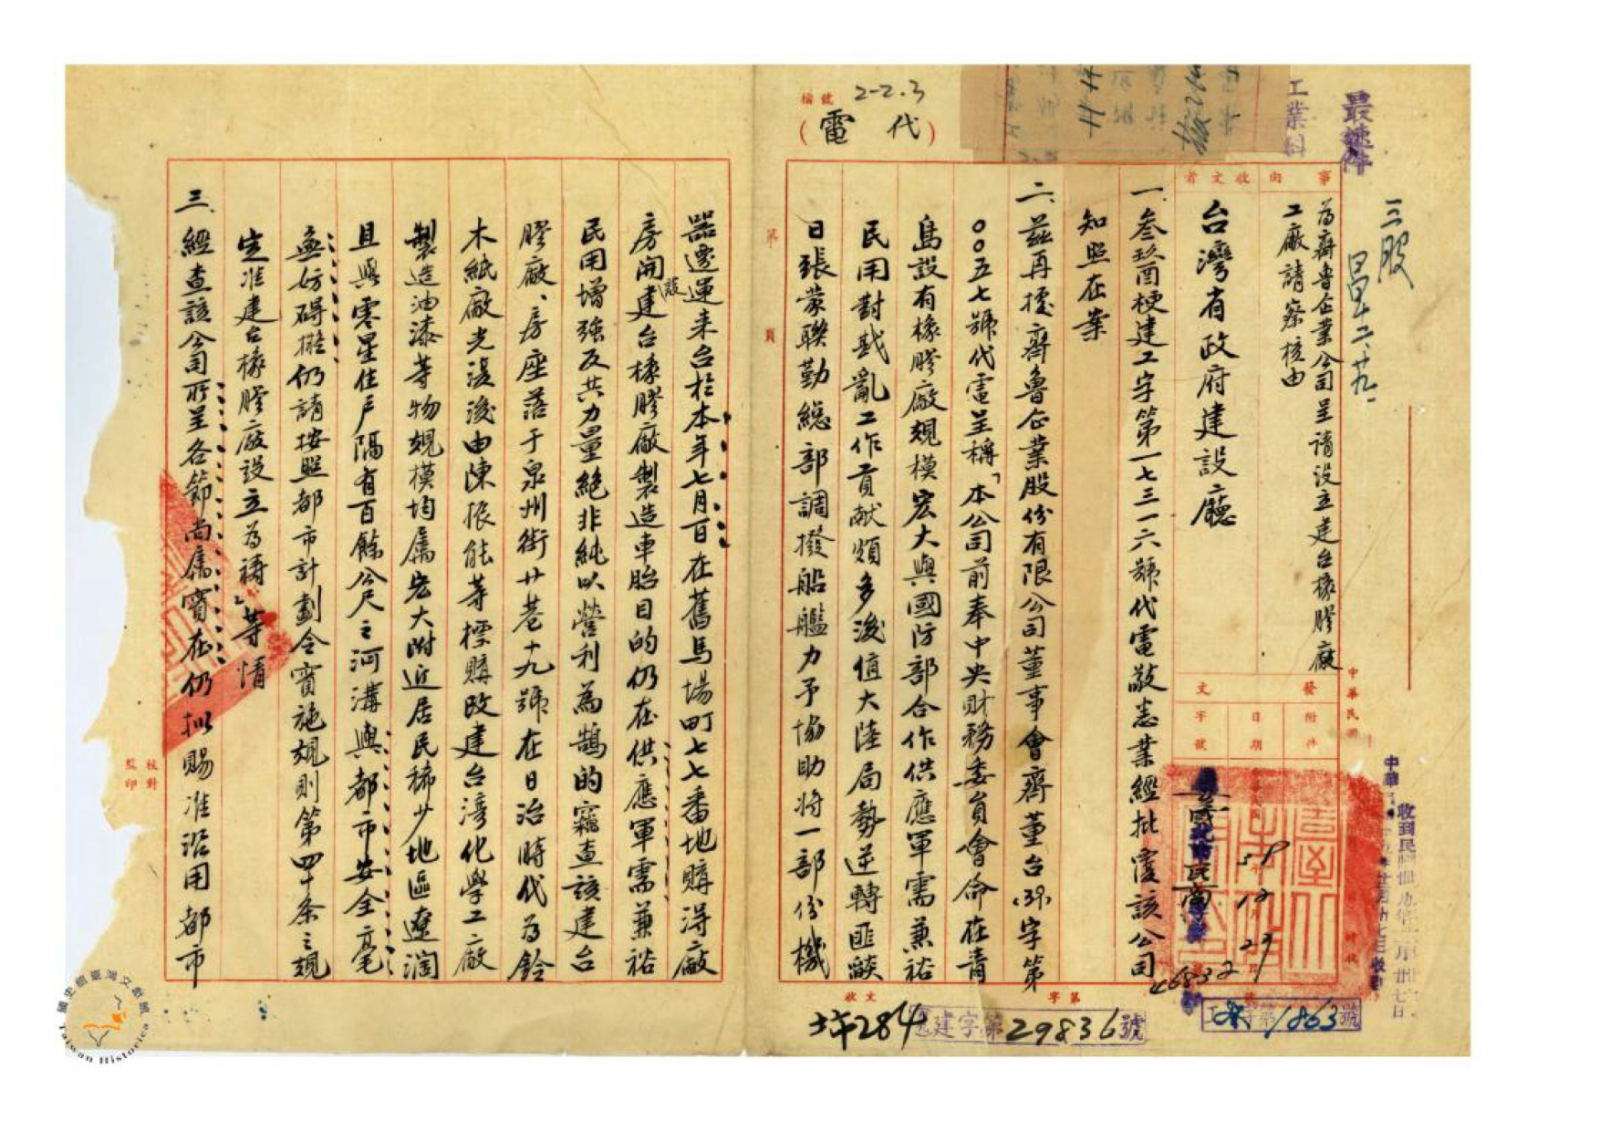 最速件
工業科
三股
檔號 2-2.3
(代電)
事由
向收文者
為齊魯企業公司呈請設立建台橡膠廠
工廠請察核由
台灣省政府建設廳
發文
附件
日期
字號
39
12
27
46832
中華民國
一、叁玖酉梗建工字第一七三一六號代電敬悉業經批覆該公司
知照在案
二、茲再據齊魯企業股份有限公司董事會齊董台(39)字第
〇〇五七號代電呈稱「本公司前奉中央財務委員會命在青
島設有橡膠廠規模宏大與國防部合作供應軍需兼裕
民用對戡亂工作貢献頗多後值大陸局勢逆轉匪燄
日張蒙聯勤總部調撥船艦力予協助將一部份機
第 頁
器遷運來台於本年七月百在舊馬場町七七番地購得廠
房開設建台橡膠廠製造車胎目的仍在供應軍需兼裕
民用增強反共力量絕非純以營利為鵠的竊查該建台
膠廠、房座落于泉州街廿巷十九號在日治時代為鈴
木紙廠光復後由陳振能等標購改建台灣化學工廠
製造油漆等物規模均屬宏大附近居民稀少地區遼濶
且與零星住戶隔有百餘公尺之河溝與都市安全毫
無妨碍擬仍請按照都市計劃令實施規則第四十条之規
定准建台橡膠廠設立為禱」等情
三、經查該公司所呈各節尚屬實在仍擬賜准沿用都市
校對
監印
收文
字第
284
建字第29836號
1863號
國史館臺灣文獻館
Taiwan Historica